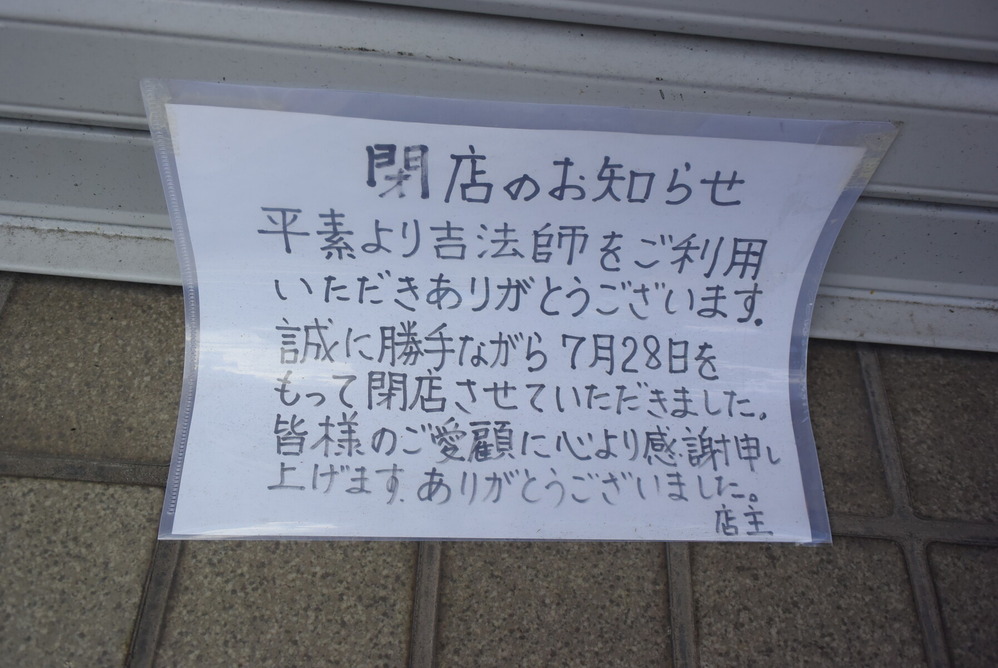 閉店のお知らせ
平素より吉法師をご利用
いただきありがとうございます.
誠に勝手ながら7月28日を
もって閉店させていただきました.
皆様のご愛顧に心より感謝申し
上げます.ありがとうございました。
店主